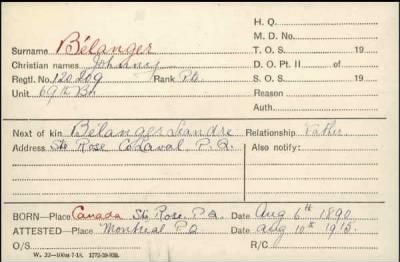 H. Q.
Surname Bélanger M. D. No.
T. O. S. 19
Christian names Johnny D. O. Pt. II of
Regtl. No. 120209 Rank Pte S. O. S. 19
Unit 69th Bn Reason
Auth.
Next of kin Bélanger Leandre Relationship Father
Address Ste Rose Co Laval P. Q. Also notify:
BORN—Place Canada Ste Rose P.Q. Date Aug 6th 1890
ATTESTED—Place Montreal P.Q Date Aug 10th 1915.
O/S R/C
W. 22—100M-7-18. 1772-39-938.